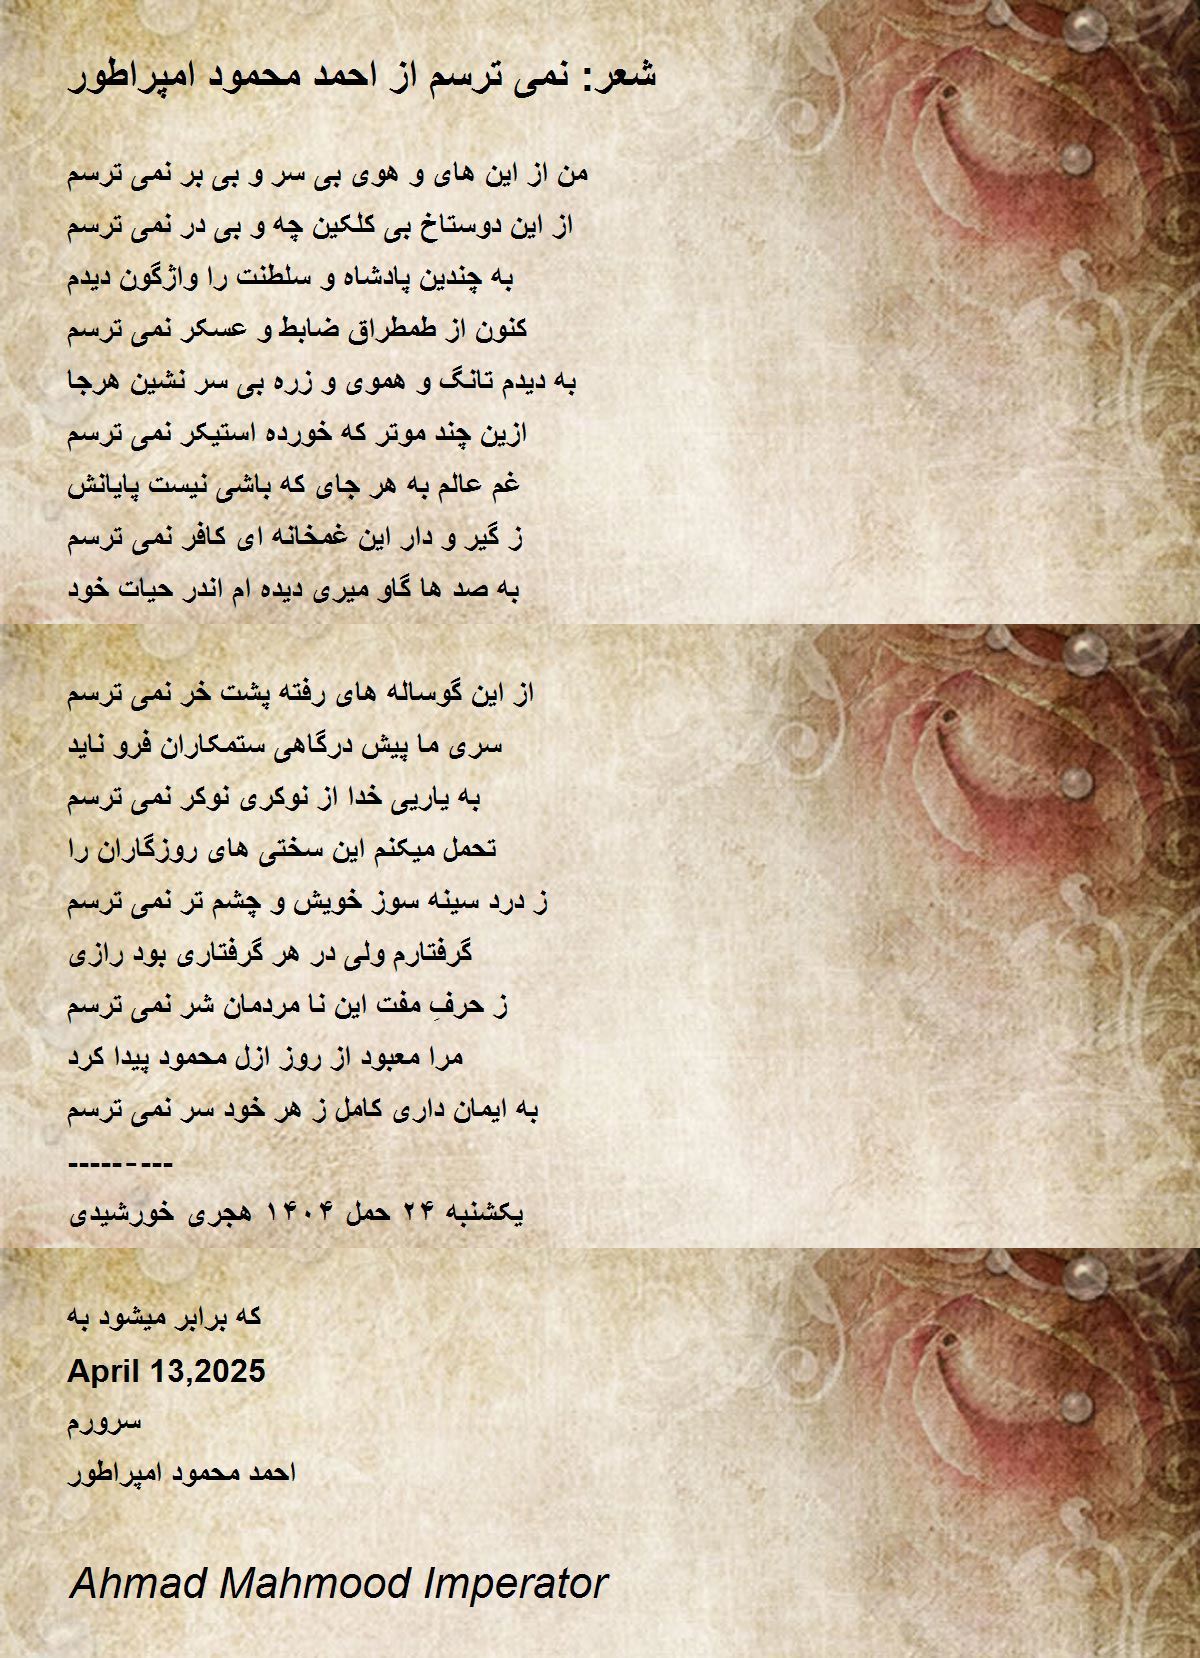 شعر: نمی ترسم از احمد محمود امپراطور
من از این های و هوی بی سر و بی بر نمی ترسم
از این دوستاخ بی کلکین چه و بی در نمی ترسم
به چندین پادشاه و سلطنت را واژگون دیدم
کنون از طمطراق ضابط و عسکر نمی ترسم
به دیدم تانگ و هموی و زره بی سر نشین هرجا
ازین چند موتر که خورده استیکر نمی ترسم
غم عالم به هر جای که باشی نیست پایانش
ز گیر و دار این غمخانه ای کافر نمی ترسم
به صد ها گاو میری دیده ام اندر حیات خود
از این گوساله های رفته پشت خر نمی ترسم
سری ما پیش درگاهی ستمکاران فرو ناید
به یاریی خدا از نوکری نوکر نمی ترسم
تحمل میکنم این سختی های روزگاران را
ز درد سینه سوز خویش و چشم تر نمی ترسم
گرفتارم ولی در هر گرفتاری بود رازی
ز حرفِ مفت این نا مردمان شر نمی ترسم
مرا معبود از روز ازل محمود پیدا کرد
به ایمان داری کامل ز هر خود سر نمی ترسم
---------
یکشنبه ۲۴ حمل ۱۴۰۴ هجری خورشیدی
که برابر میشود به
April 13,2025
سرورم
احمد محمود امپراطور
Ahmad Mahmood Imperator